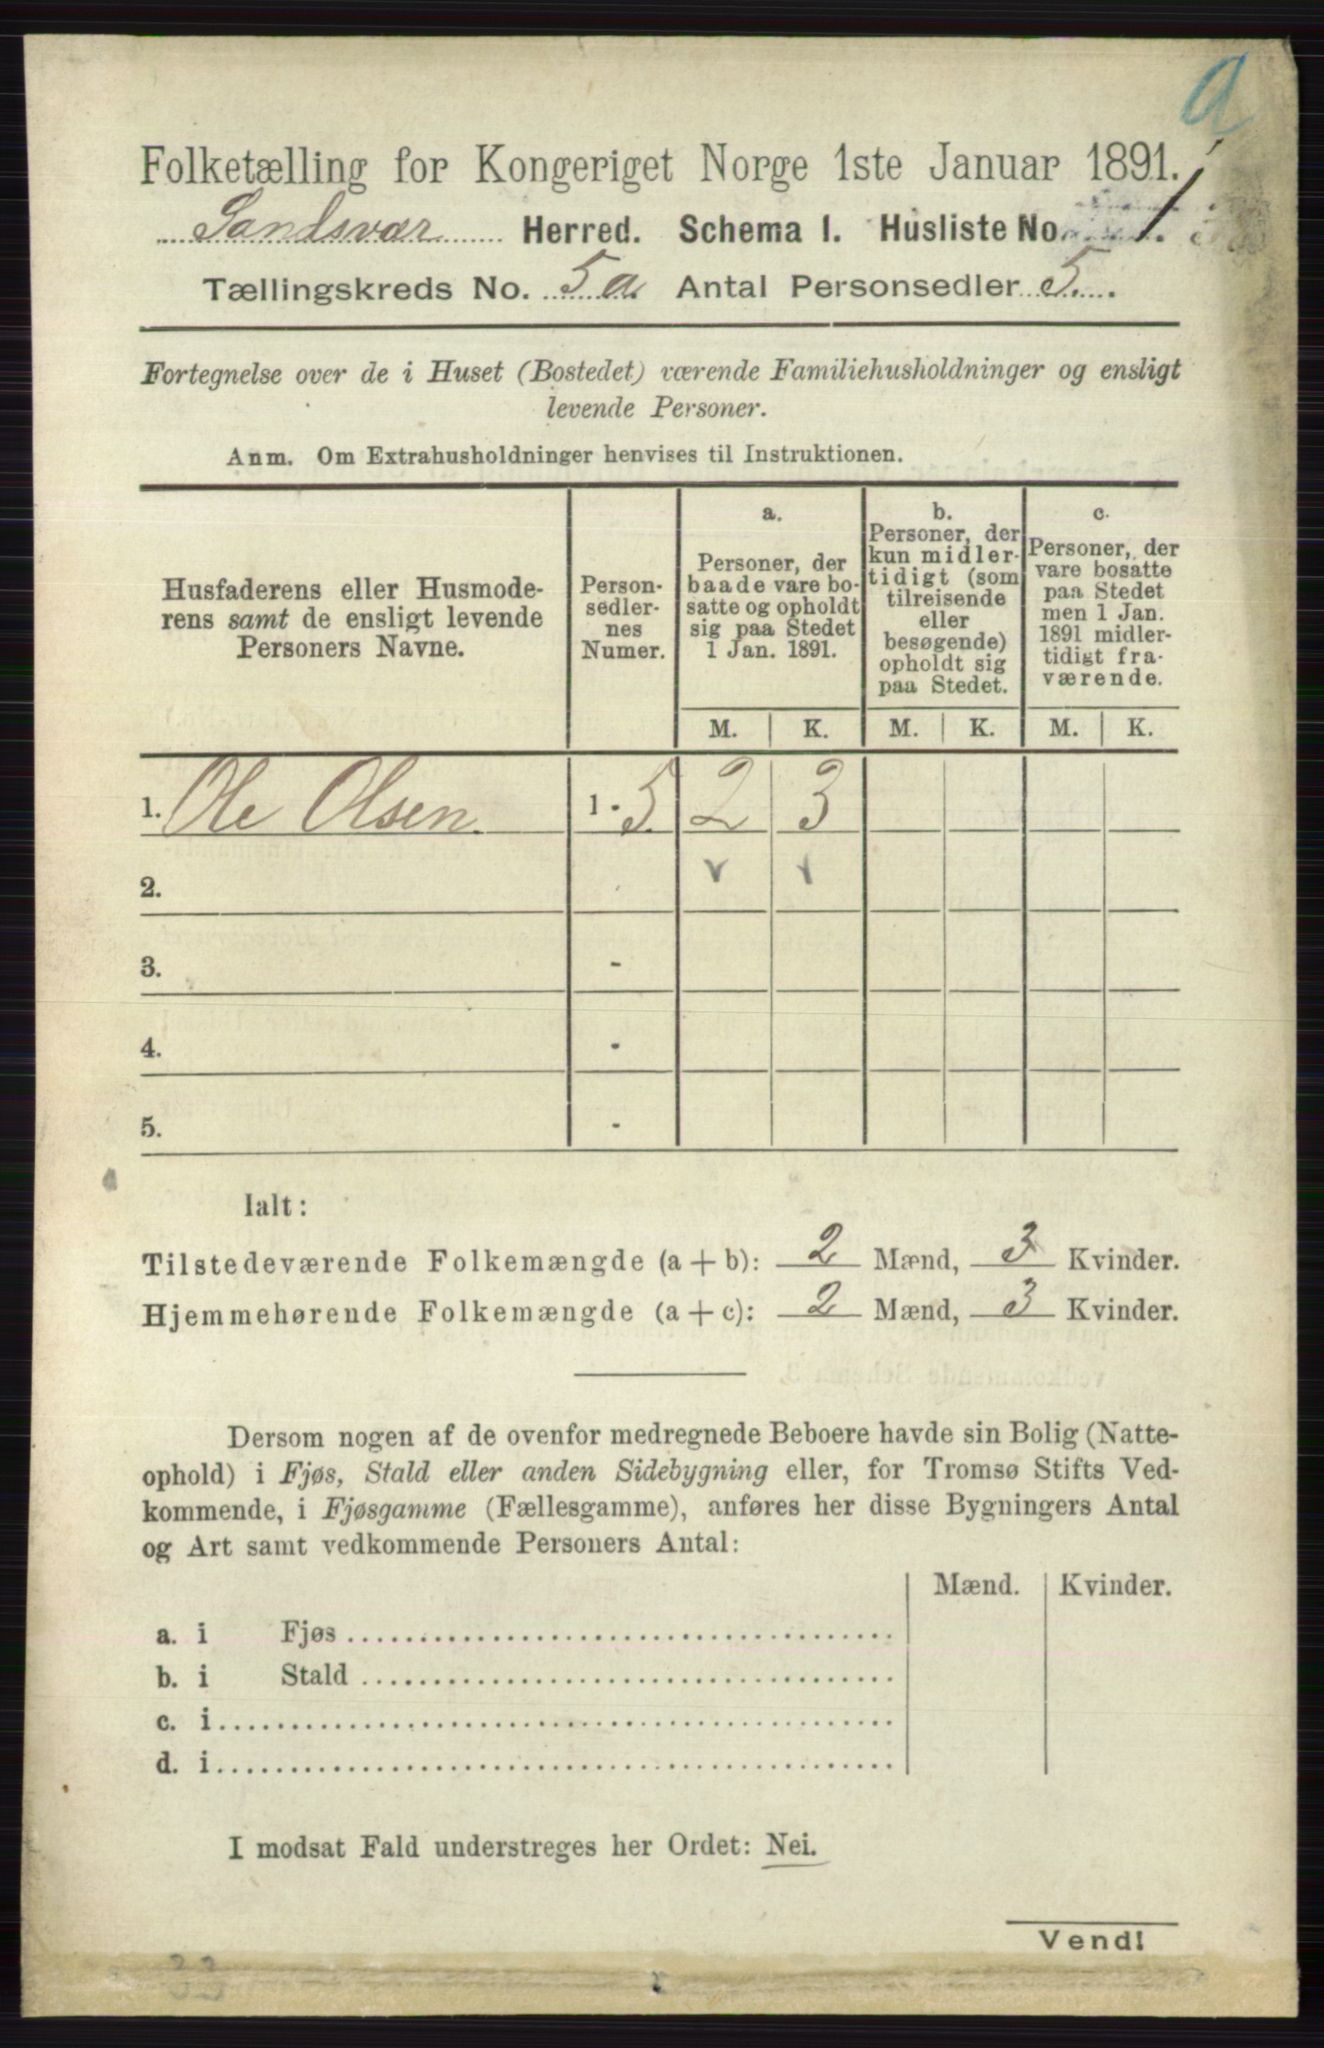 a
Folketælling for Kongeriget Norge 1ste Januar 1891.
Sandsvær Herred. Schema I. Husliste No. 1.
Tællingskreds No. 5a. Antal Personsedler 5.
Fortegnelse over de i Huset (Bostedet) værende Familiehusholdninger og ensligt
levende Personer.
Anm. Om Extrahusholdninger henvises til Instruktionen.
Husfaderens eller Husmode-
rens samt de ensligt levende
Personers Navne.
Person-
sedler-
nes
Numer.
a.
Personer, der
baade vare bo-
satte og opholdt
sig paa Stedet
1 Jan. 1891.
b.
Personer, der
kun midler-
tidigt (som
tilreisende
eller
besøgende)
opholdt sig
paa Stedet.
c.
Personer, der
vare bosatte
paa Stedet
men 1 Jan.
1891 midler-
tidigt fra-
værende.
M. K. M. K. M. K.
1. Ole Olsen. 1 - 5 2 3
2.
3. -
4. -
5. -
Ialt:
Tilstedeværende Folkemængde (a + b): 2 Mænd, 3 Kvinder.
Hjemmehørende Folkemængde (a + c): 2 Mænd, 3 Kvinder.
Dersom nogen af de ovenfor medregnede Beboere havde sin Bolig (Natte-
ophold) i Fjøs, Stald eller anden Sidebygning eller, for Tromsø Stifts Ved-
kommende, i Fjøsgamme (Fællesgamme), anføres her disse Bygningers Antal
og Art samt vedkommende Personers Antal:
Mænd. Kvinder.
a. i Fjøs
b. i Stald
c. i
d. i
I modsat Fald understreges her Ordet: Nei.
Vend!
33